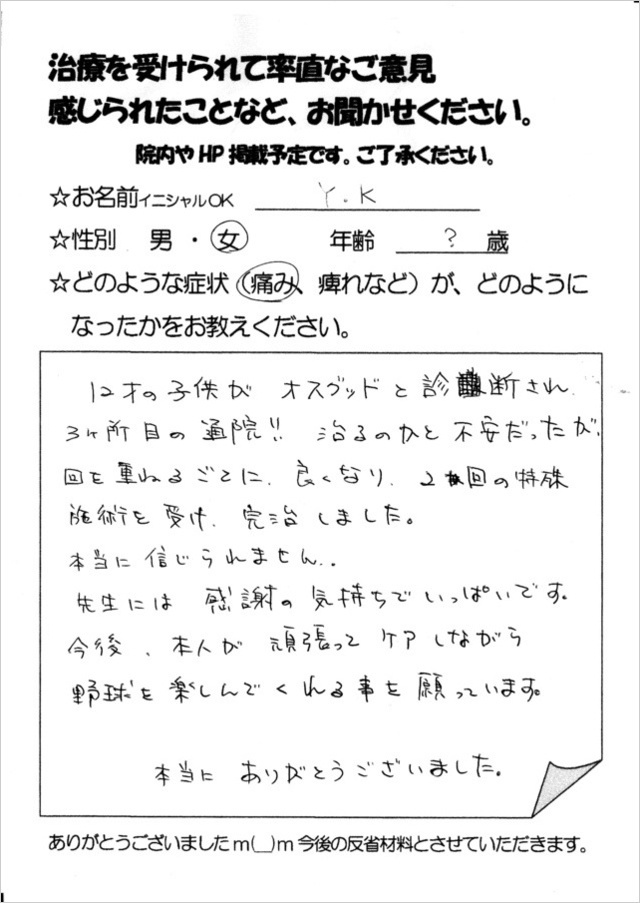 治療を受けられて率直なご意見
感じられたことなど、お聞かせください。
院内やHP掲載予定です。ご了承ください。
☆お名前イニシャルOK Y.K
☆性別 男・女 年齢 ? 歳
☆どのような症状(痛み、痺れなど)が、どのように
なったかをお教えください。
12才の子供が オスグッドと診断され
3ヶ所目の通院!! 治るのかと不安だったが、
回を重ねるごとに、良くなり、2回の特殊
施術を受け、完治しました。
本当に信じられません..
先生には 感謝の気持ちでいっぱいです。
今後、本人が 頑張って ケアしながら
野球を楽しんでくれる事を願っています。
本当に ありがとうございました。
ありがとうございましたm(__)m今後の反省材料とさせていただきます。